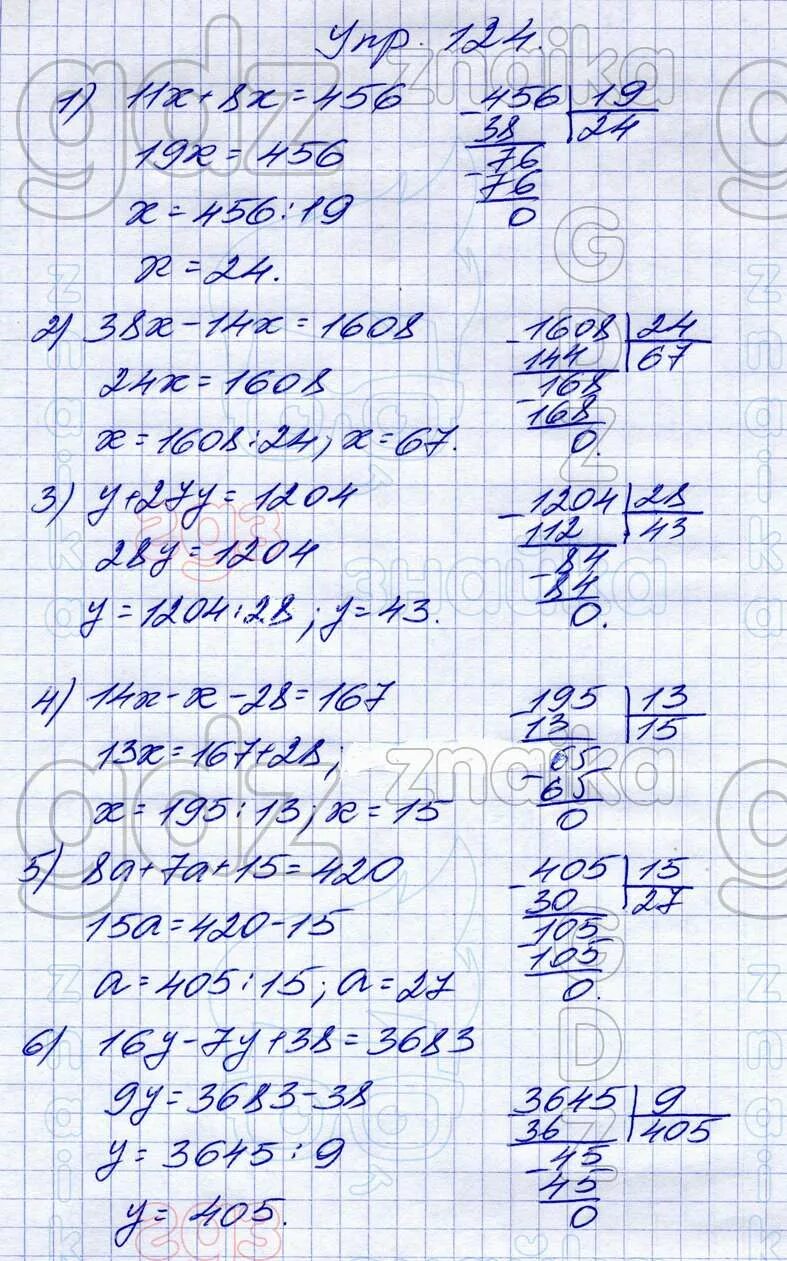 Упр. 124.
1) 11x + 8x = 456
19x = 456
x = 456 : 19
x = 24.
- 456 | 19
38 | 24
76
- 76
0
2) 38x - 14x = 1608
24x = 1608
x = 1608 : 24; x = 67.
- 1608 | 24
144 | 67
- 168
168
0.
3) y + 27y = 1204
28y = 1204
y = 1204 : 28; y = 43.
- 1204 | 28
112 | 43
- 84
84
0.
4) 14x - x - 28 = 167
13x = 167 + 28;
x = 195 : 13; x = 15
- 195 | 13
13 | 15
- 65
65
0
5) 8a + 7a + 15 = 420
15a = 420 - 15
a = 405 : 15; a = 27
- 405 | 15
30 | 27
- 105
105
0.
6) 16y - 7y + 38 = 3683
9y = 3683 - 38
y = 3645 : 9
y = 405.
- 3645 | 9
36 | 405
- 45
45
0
gdz
znaika
GDZ
znaika
гдз
знайка
gdz
znaika
GDZ
znaika
гдз